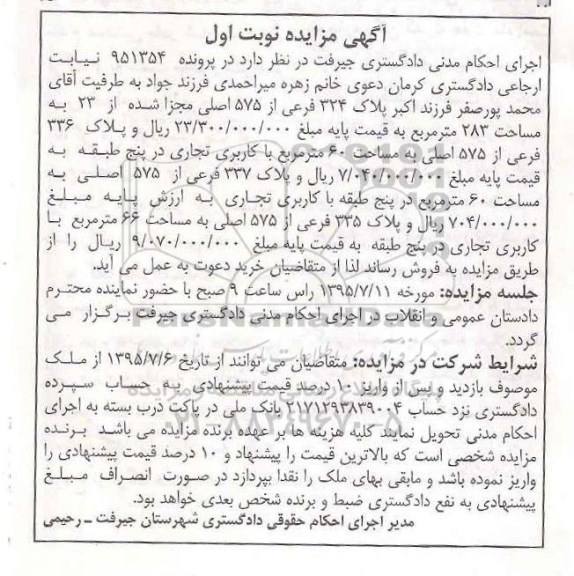 آگهی مزایده نوبت اول
اجرای احکام مدنی دادگستری جیرفت در نظر دارد در پرونده ۹۵۱۳۵۴ نیابت
ارجاعی دادگستری کرمان دعوی خانم زهره میراحمدی فرزند جواد به طرفیت آقای
محمد پورصفر فرزند اکبر پلاک ۳۲۴ فرعی از ۵۷۵ اصلی مجزا شده از ۲۳ به
مساحت ۲۸۳ مترمربع به قیمت پایه مبلغ ۲۳/۳۰۰/۰۰۰/۰۰۰ ریال و پلاک ۳۳۶
فرعی از ۵۷۵ اصلی به مساحت ۶۰ مترمربع با کاربری تجاری در پنج طبقه به
قیمت پایه مبلغ ۷/۰۴۰/۰۰۰/۰۰۰ ریال و پلاک ۳۳۷ فرعی از ۵۷۵ اصلی به
مساحت ۶۰ مترمربع در پنج طبقه با کاربری تجاری به ارزش پایه مبلغ
۷۰۴/۰۰۰/۰۰۰ ریال و پلاک ۳۳۵ فرعی از ۵۷۵ اصلی به مساحت ۶۶ مترمربع با
کاربری تجاری در پنج طبقه به قیمت پایه مبلغ ۹/۰۷۰/۰۰۰/۰۰۰ ریال را از
طریق مزایده به فروش رساند لذا از متقاضیان خرید دعوت به عمل می آید.
جلسه مزایده: مورخه ۱۳۹۵/۷/۱۱ راس ساعت ۹ صبح با حضور نماینده محترم
دادستان عمومی و انقلاب در اجرای احکام مدنی دادگستری جیرفت برگزار می
گردد.
شرایط شرکت در مزایده: متقاضیان می توانند از تاریخ ۱۳۹۵/۷/۶ از ملک
موصوف بازدید و پس از واریز ۱۰ درصد قیمت پیشنهادی به حساب سپرده
دادگستری نزد حساب ۲۱۷۱۲۹۳۸۳۹۰۰۴ بانک ملی در پاکت درب بسته به اجرای
احکام مدنی تحویل نمایند کلیه هزینه ها بر عهده برنده مزایده می باشد برنده
مزایده شخصی است که بالاترین قیمت را پیشنهاد و ۱۰ درصد قیمت پیشنهادی را
واریز نموده باشد و مابقی بهای ملک را نقدا بپردازد در صورت انصراف مبلغ
پیشنهادی به نفع دادگستری ضبط و برنده شخص بعدی خواهد بود.
مدیر اجرای احکام حقوقی دادگستری شهرستان جیرفت ـ رحیمی